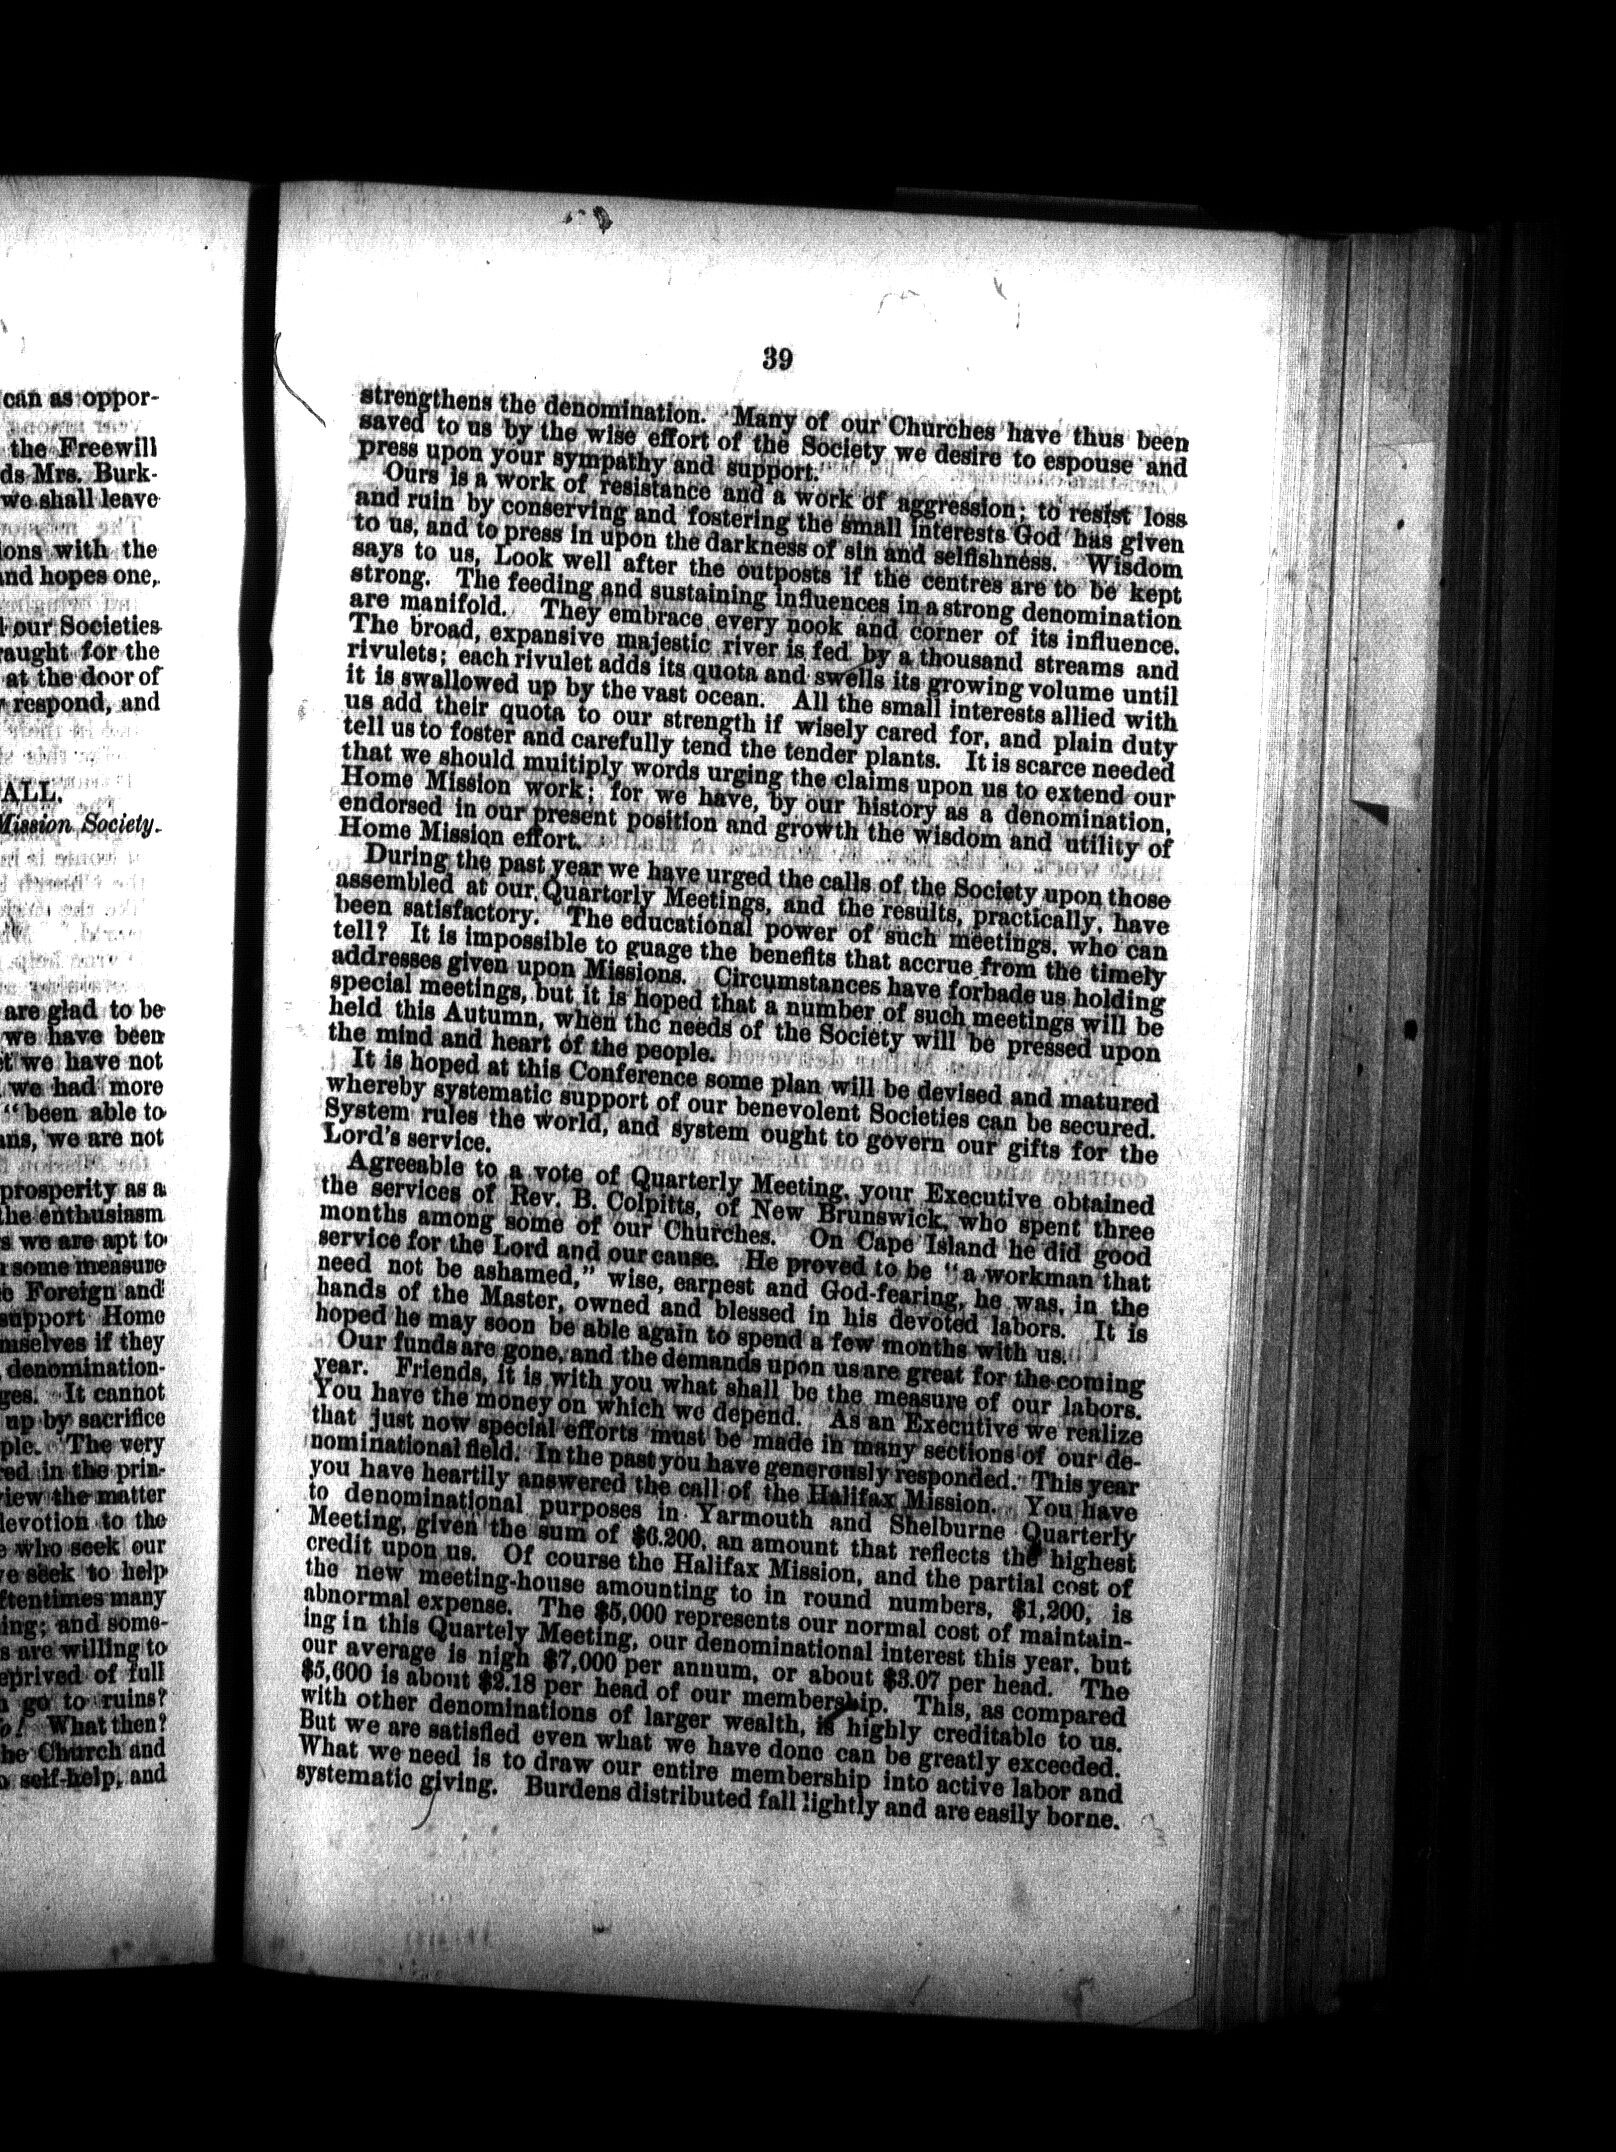 can as oppor-
the Freewill
ds Mrs. Burk-
we shall leave
ions with the
and hopes one,
our Societies
aught for the
at the door of
respond, and
ALL.
Mission Society.
are glad to be
we have been
we have not
we had more
"been able to
ans, we are not
prosperity as a
the enthusiasm
s we are apt to
some measure
Foreign and
support Home
mselves if they
denomination-
ges. It cannot
up by sacrifice
ple. The very
red in the prin-
view the matter
devotion to the
who seek our
seek to help
ftentimes many
ing; and some-
s are willing to
eprived of full
go to ruins?
What then?
he Church and
self-help, and
39
strengthens the denomination. Many of our Churches have thus been
saved to us by the wise effort of the Society we desire to espouse and
press upon your sympathy and support.
Ours is a work of resistance and a work of aggression; to resist loss
and ruin by conserving and fostering the small interests God has given
to us, and to press in upon the darkness of sin and selfishness. Wisdom
says to us, Look well after the outposts if the centres are to be kept
strong. The feeding and sustaining influences in a strong denomination
are manifold. They embrace every nook and corner of its influence.
The broad, expansive majestic river is fed by a thousand streams and
rivulets; each rivulet adds its quota and swells its growing volume until
it is swallowed up by the vast ocean. All the small interests allied with
us add their quota to our strength if wisely cared for, and plain duty
tell us to foster and carefully tend the tender plants. It is scarce needed
that we should muitiply words urging the claims upon us to extend our
Home Mission work; for we have, by our history as a denomination,
endorsed in our present position and growth the wisdom and utility of
Home Mission effort.
During the past year we have urged the calls of the Society upon those
assembled at our Quarterly Meetings, and the results, practically, have
been satisfactory. The educational power of such meetings, who can
tell? It is impossible to guage the benefits that accrue from the timely
addresses given upon Missions. Circumstances have forbade us holding
special meetings, but it is hoped that a number of such meetings will be
held this Autumn, when the needs of the Society will be pressed upon
the mind and heart of the people.
It is hoped at this Conference some plan will be devised and matured
whereby systematic support of our benevolent Societies can be secured.
System rules the world, and system ought to govern our gifts for the
Lord's service.
Agreeable to a vote of Quarterly Meeting, your Executive obtained
the services of Rev. B. Colpitts, of New Brunswick, who spent three
months among some of our Churches. On Cape Island he did good
service for the Lord and our cause. He proved to be "a workman that
need not be ashamed," wise, earnest and God-fearing, he was, in the
hands of the Master, owned and blessed in his devoted labors. It is
hoped he may soon be able again to spend a few months with us.
Our funds are gone, and the demands upon us are great for the coming
year. Friends, it is with you what shall be the measure of our labors.
You have the money on which we depend. As an Executive we realize
that just now special efforts must be made in many sections of our de-
nominational field. In the past you have generously responded. This year
you have heartily answered the call of the Halifax Mission. You have
to denominational purposes in Yarmouth and Shelburne Quarterly
Meeting, given the sum of $6.200, an amount that reflects the highest
credit upon us. Of course the Halifax Mission, and the partial cost of
the new meeting-house amounting to in round numbers, $1,200, is
abnormal expense. The $5,000 represents our normal cost of maintain-
ing in this Quartely Meeting, our denominational interest this year, but
our average is nigh $7,000 per annum, or about $3.07 per head. The
$5,600 is about $2.18 per head of our membership. This, as compared
with other denominations of larger wealth, is highly creditable to us.
But we are satisfied even what we have done can be greatly exceeded.
What we need is to draw our entire membership into active labor and
systematic giving. Burdens distributed fall lightly and are easily borne.